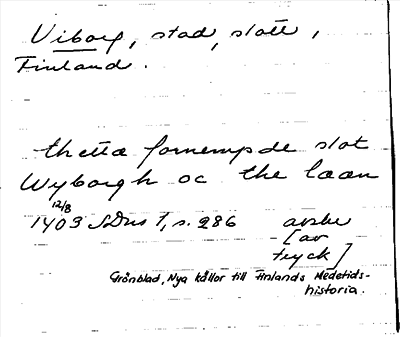 Viborg, stad, slott,
Finland.
thetta fornempde slot
Wyborgh oc the laan
12/8
1403 SDns 1, s. 286 avskr
[av
tryck]
Grönblad, Nya källor till Finlands Medetids-
historia.